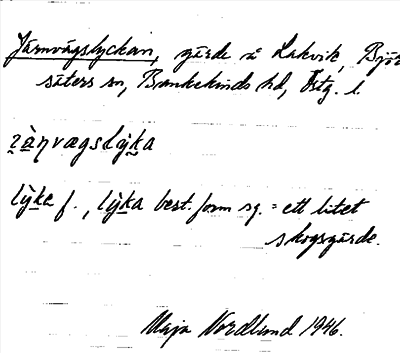 Järnvägslyckan, gärde å Lakvik, Björ
säters sn, Bankekinds hd, Östg. l.
lỳka f., lỳka best. form sg. = ett litet
skogsgärde.
Maja Nordlund 1946.